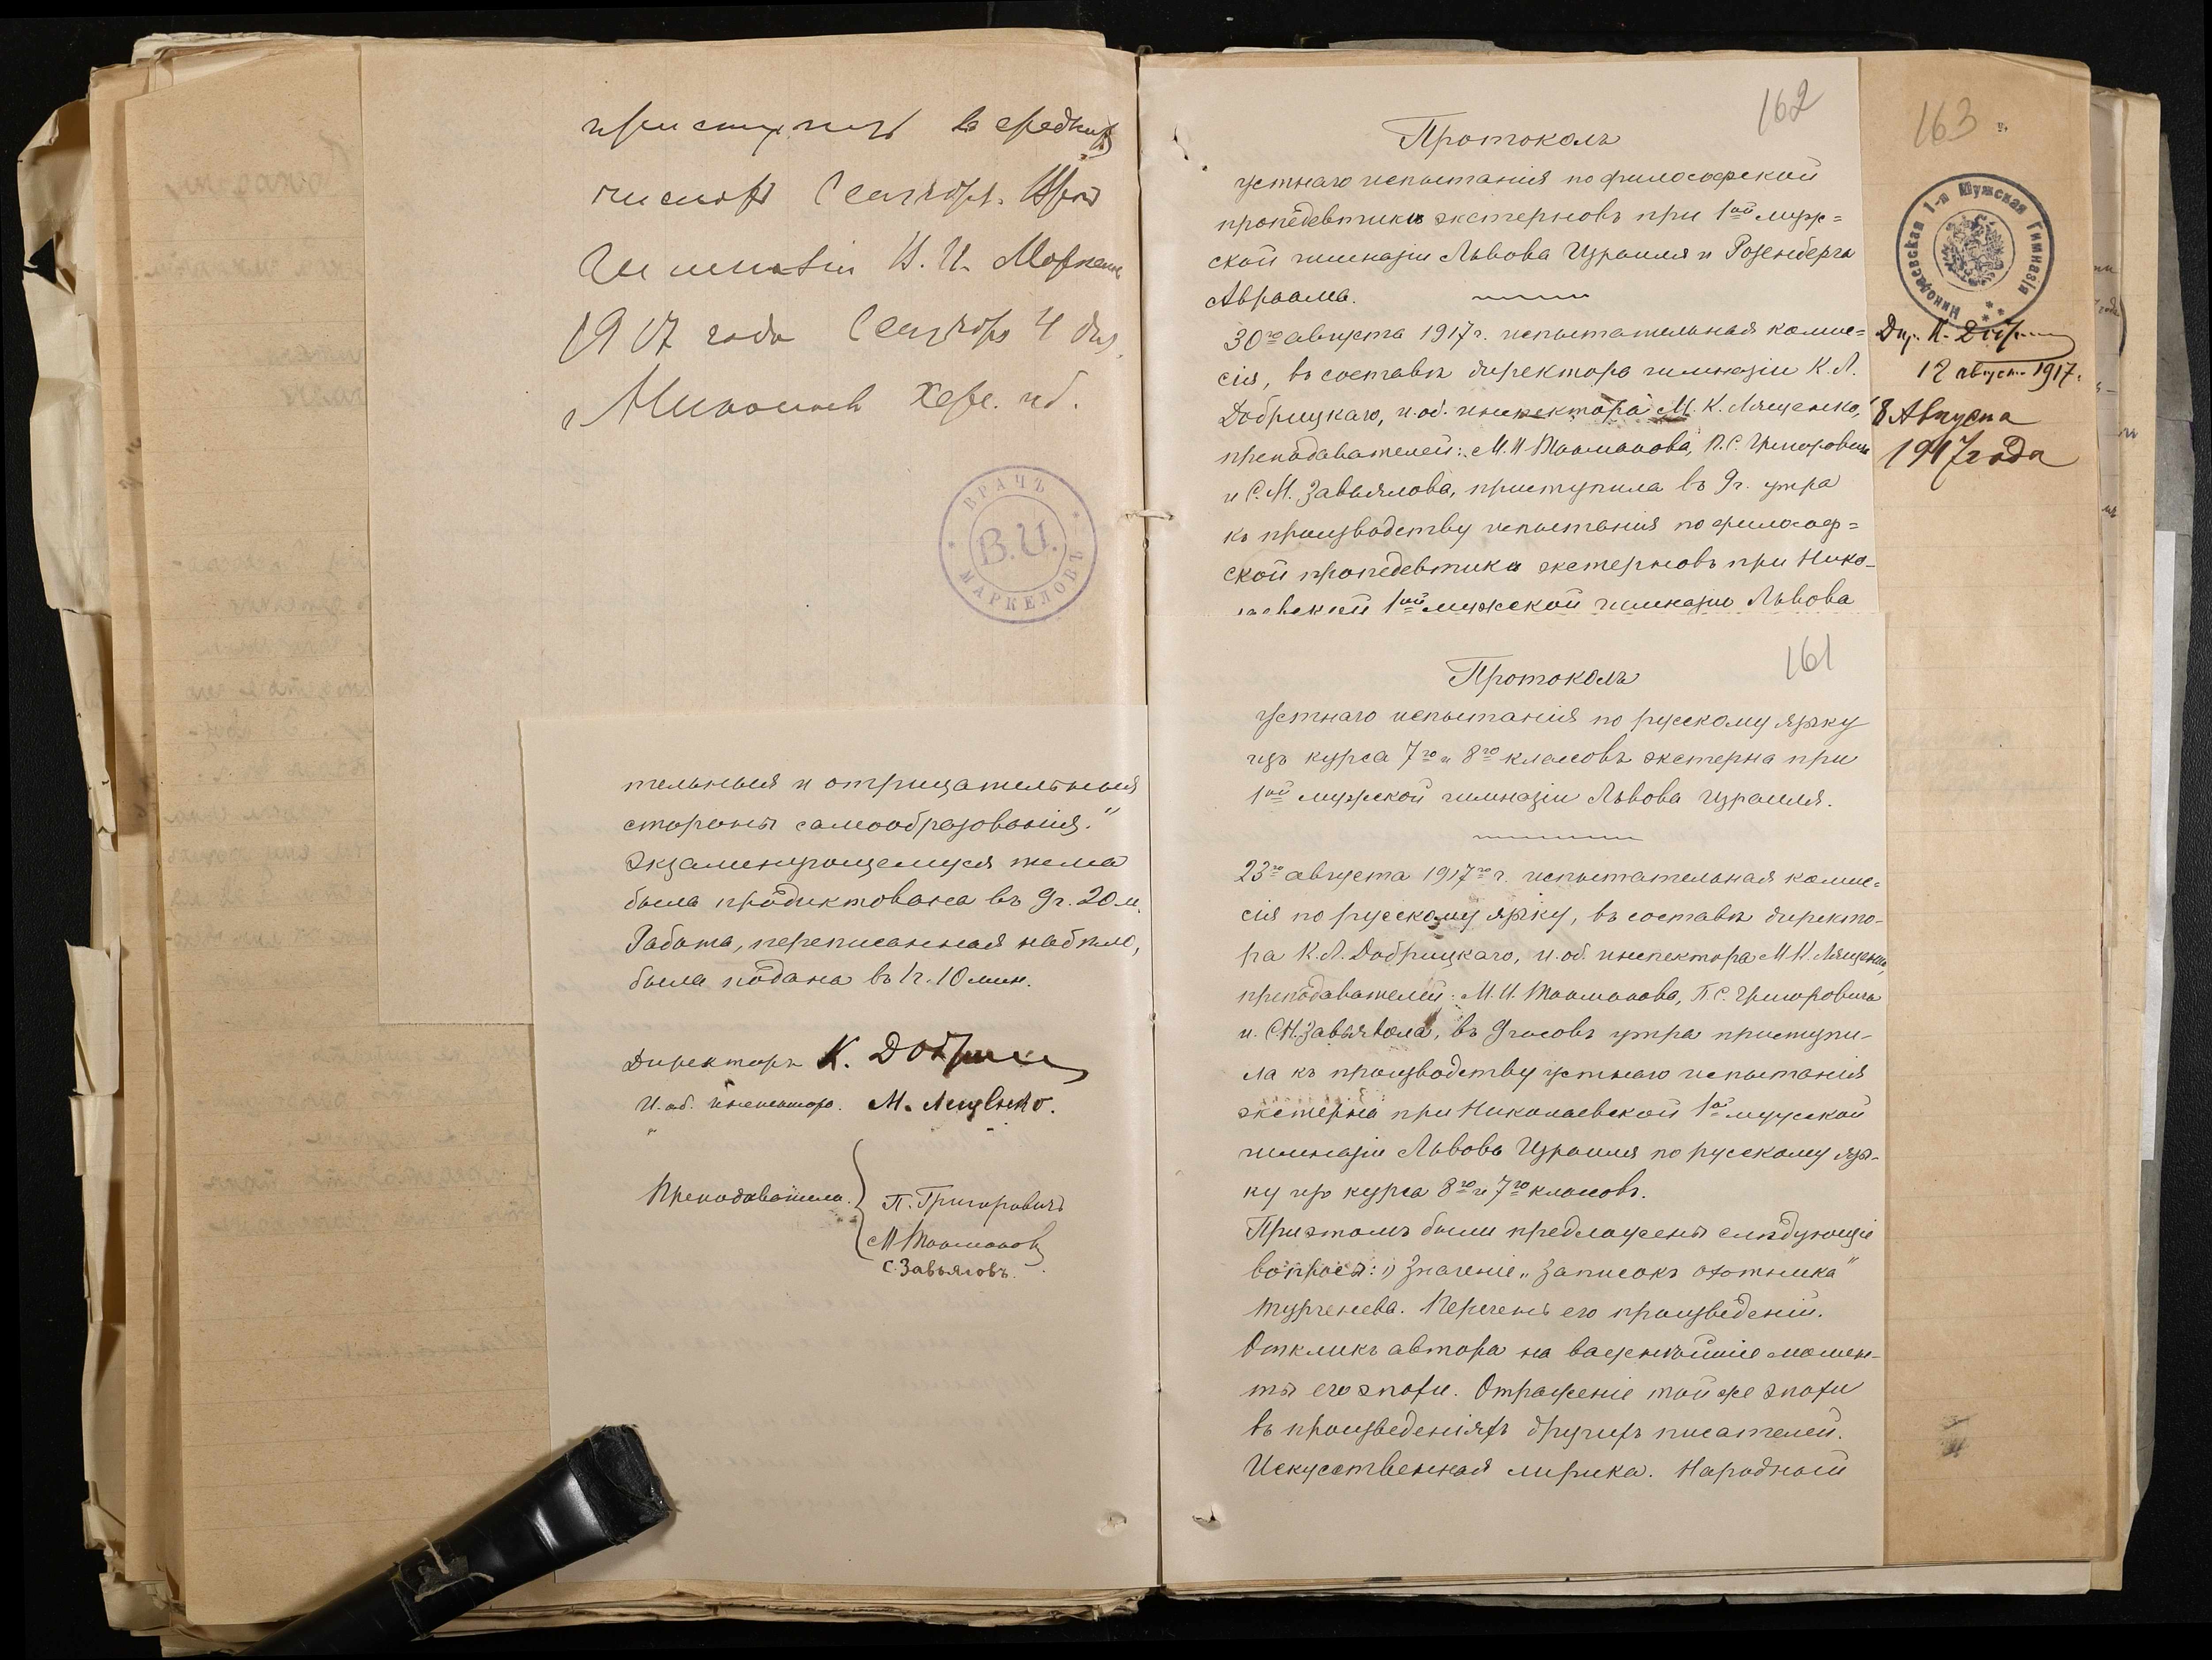 приступить въ среднихъ
числахъ Сентября. Врачъ
Гимназіи В. И. Маркеловъ
1917 года Сентября 4 дня.
г Николаевъ Херс. губ.
ВРАЧЪ
В.И.
МАРКЕЛОВЪ
тельныя и отрицательныя
стороны самообразованія."
Экзаменующемуся тема
была продиктована въ 9ч. 20 м.
Работа, переписанная набѣло,
была подана въ 1ч. 10 мин.
Директоръ К. Добр
И. об. инспектора. М. Лященко.
Преподаватели.
П. Григоровичъ
М Тоомановъ
С. Завьяловъ.
162
Протоколъ
устнаго испытанія по философской
пропедевтикѣ экстерновъ при 1ой муж=
ской гимназіи Львова Израиля и Розенберга
Авраама.
30го августа 1917 г. испытательная комис=
сія, въ составѣ директора гимназіи К. Л.
Добрицкаго, и. об. инспектора М. К. Лященко,
преподавателей: М. И Тооманова, П. С. Григоровича
и С. М. Завьялова, приступила въ 9ч. утра
къ производству испытанія по философ=
ской пропедевтикѣ экстерновъ при Нико-
лаевской 1ой мужской гимназіи Львова
161
Протоколъ
устнаго испытанія по русскому языку
изъ курса 7го и 8го классовъ экстерна при
1ой мужской гимназіи Львова Израиля.
23го августа 1917го г. испытательная комис=
сія по русскому языку, въ составѣ директо-
ра К. Л. Добрицкаго, и. об. инспектора М К. Лященко,
преподавателей: М. И. Тооманова, П. С. Григоровича
и. С. М. Завьялова, въ 9 часовъ утра приступи-
ла къ производству устнаго испытанія
экстерна при Николаевской 1ой мужской
гимназіи Львова Израиля по русскому язы-
ку изъ курса 8го и 7го классовъ.
При этомъ были предложены слѣдующіе
вопросы: 1) Значеніе „Записокъ охотника"
Тургенева. Перечень его произведеній.
Откликъ автора на важнѣйшіе момен-
ты его эпохи. Отраженіе той же эпохи
въ произведеніяхъ другихъ писателей.
Искусственная лирика. Народный
163
Николаевская 1-я Мужская Гимназія
Дир. К. Добр
12 август. 1917.
8 Августа
1917 года